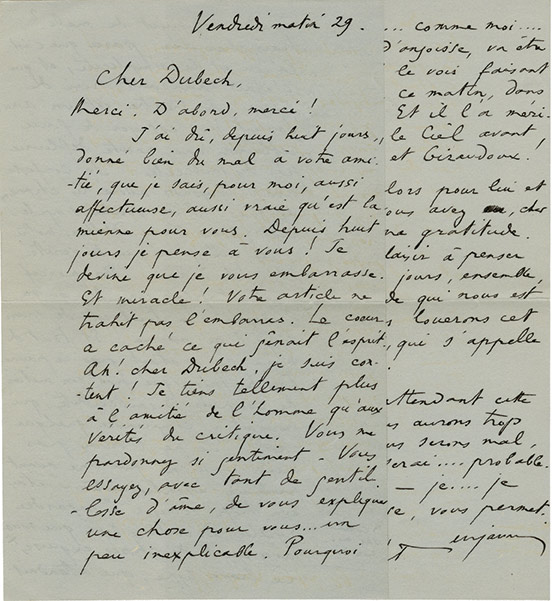 Vendredi matin 29.
Cher Dubech,
Merci. D'abord, merci!
J'ai dû, depuis huit jours,
donné bien du mal à votre ami-
-tié, que je sais, pour moi, aussi
affectueuse, aussi vraie qu'est la
mienne pour vous. Depuis huit
jours je pense à vous! Je
devine que je vous embarrasse.
Et miracle! Votre article ne
trahit pas l'embarras. Le cœur
a caché ce qui gênait l'esprit.
Ah! cher Dubech, je suis con-
-tent! Je tiens tellement plus
à l'amitié de l'homme qu'aux
vérités du critique. Vous me
pardonnez si gentiment - Vous
essayez, avec tant de gentil-
-lesse d'âme, de vous expliquer
une chose pour vous... un
peu inexplicable. Pourquoi
... comme moi....
d'angoisse, va être
le vois faisant
ce matin, dans
Et il l'a méri-
le Ciel avant!
et Giraudoux!
lors pour lui et
ous avez, cher
ne gratitude.
laisir à penser
jours, ensemble,
de qui nous est
louerons cet
qui s'appelle
attendant cette
s aurons trop
us serons mal,
serai.... probable-
— je.... je
ce, vous permet-